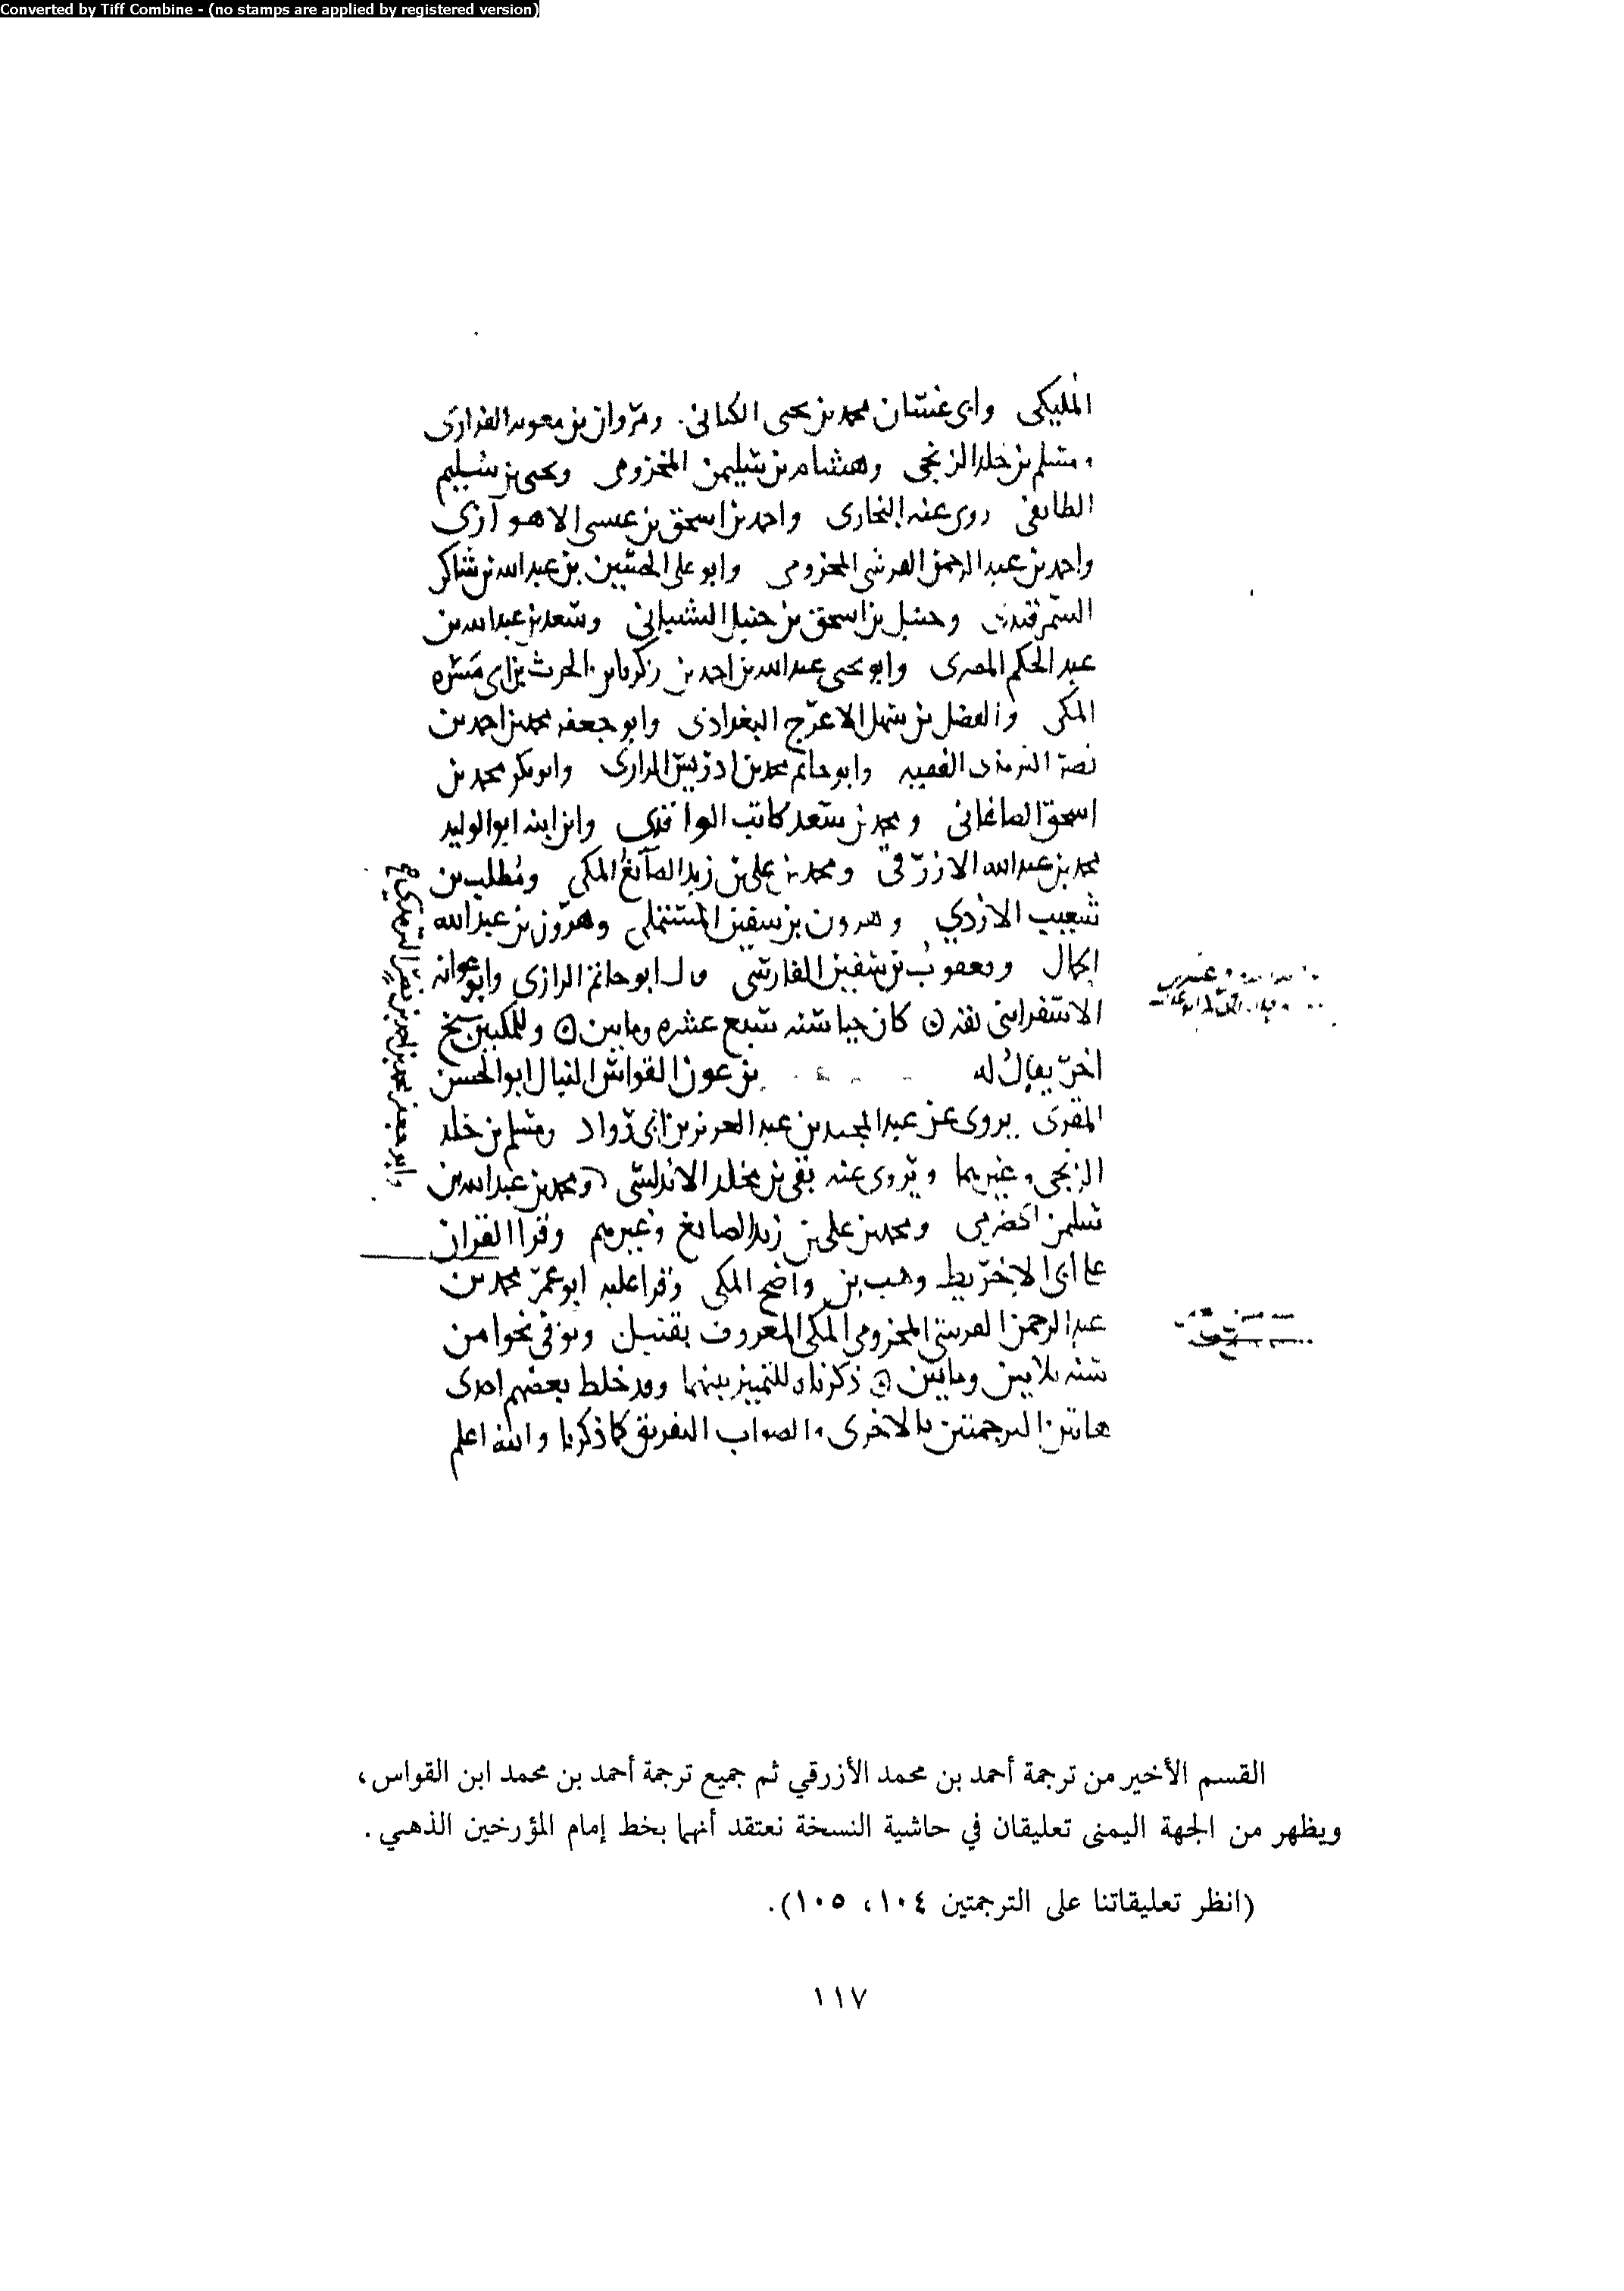 Converted by Tiff Combine - (no stamps are applied by registered version)
المليكي وابى غسان محمد بن يحيى الكنانى . ومروان بن معويه الفزارى
ومسلم بن خلد الزنجى وهشام بن سليمن المخزومى ويحيى بن سليم
الطائفى روى عنه البخارى واحمد بن اسحق بن عيسى الاهوازى
واحمد بن عبد الرحمن القرشى المخزومى وابو على الحسين بن عبد الله بن شاكر
السمرقندى وحنبل بن اسحق بن حنبل الشيبانى وسعد بن عبد الله بن
عبد الحكم المصرى وابو يحيى عبد الله بن احمد بن زكريا بن الحرث بن ابى مسره
المكى والفضل بن سهل الاعرج البغدادى وابو جعفر محمد بن احمد بن
نصر الترمذى الفقيه وابو حاتم محمد بن ادريس الرازى وابو بكر محمد بن
اسحق الصاغانى ومحمد بن سعد كاتب الواقدى وابن ابنه ابو الوليد
محمد بن عبد الله الازرقى ومحمد بن على بن زيد الصائغ المكى ومطلب بن
شعيب الازدي وهرون بن سفين المستملى وهرون بن عبد الله
الحمال ويعقوب بن سفين الفارسى قال ابو حاتم الرازى وابو عوانه
الاسفراينى ثقه ۞ كان حيا سنه سبع عشره ومايتين ۞ وللمكيين شيخ
اخر يقال له بن عون القواس النبال ابو الحسن
المقرى يروى عن عبد المجيد بن عبد العزيز بن ابى رواد ومسلم بن خلد
الزنجى وغيرهما ويروى عنه بقى بن مخلد الاندلسى ومحمد بن عبد الله بن
سليمن الحضرمى ومحمد بن على بن زيد الصائغ وغيرهم وقرا القران
على ابى الاخريط وهب بن واضح المكى وقرا عليه ابو عمر محمد بن
عبد الرحمن القرشى المخزومى المكى المعروف بقنبل وتوفى نحوا من
سنه ثلاثين ومايتين ۞ ذكرناه للتمييز بينهما وقد خلط بعضهم احدى
هاتين الترجمتين بالاخرى والصواب التفريق كما ذكرنا والله اعلم
وابو جعفر محمد بن احمد بن نصر الترمذي
القسم الأخير من ترجمة أحمد بن محمد الأزرقي ثم جميع ترجمة أحمد بن محمد ابن القواس،
ويظهر من الجهة اليمنى تعليقان في حاشية النسخة نعتقد أنهما بخط إمام المؤرخين الذهبي .
(انظر تعليقاتنا على الترجمتين ١٠٤، ١٠٥).
١١٧